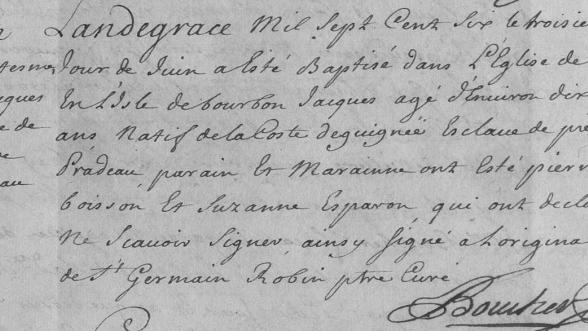 Landegrace Mil Sept Cent Six le troisie
Jour de Juin a Esté Baptisé dans L'Eglise de
En L'Isle de bourbon Jacques agé d'Enuiron dix
ans Natif de la Coste de guignée Esclave de pre
Pradeau parain Et Marainne ont Esté pierr
boisson Et Suzanne Esparon qui ont decla
Ne Scauoir Signer ainsy Signé a L'origina
de St Germain Robin ptre Curé